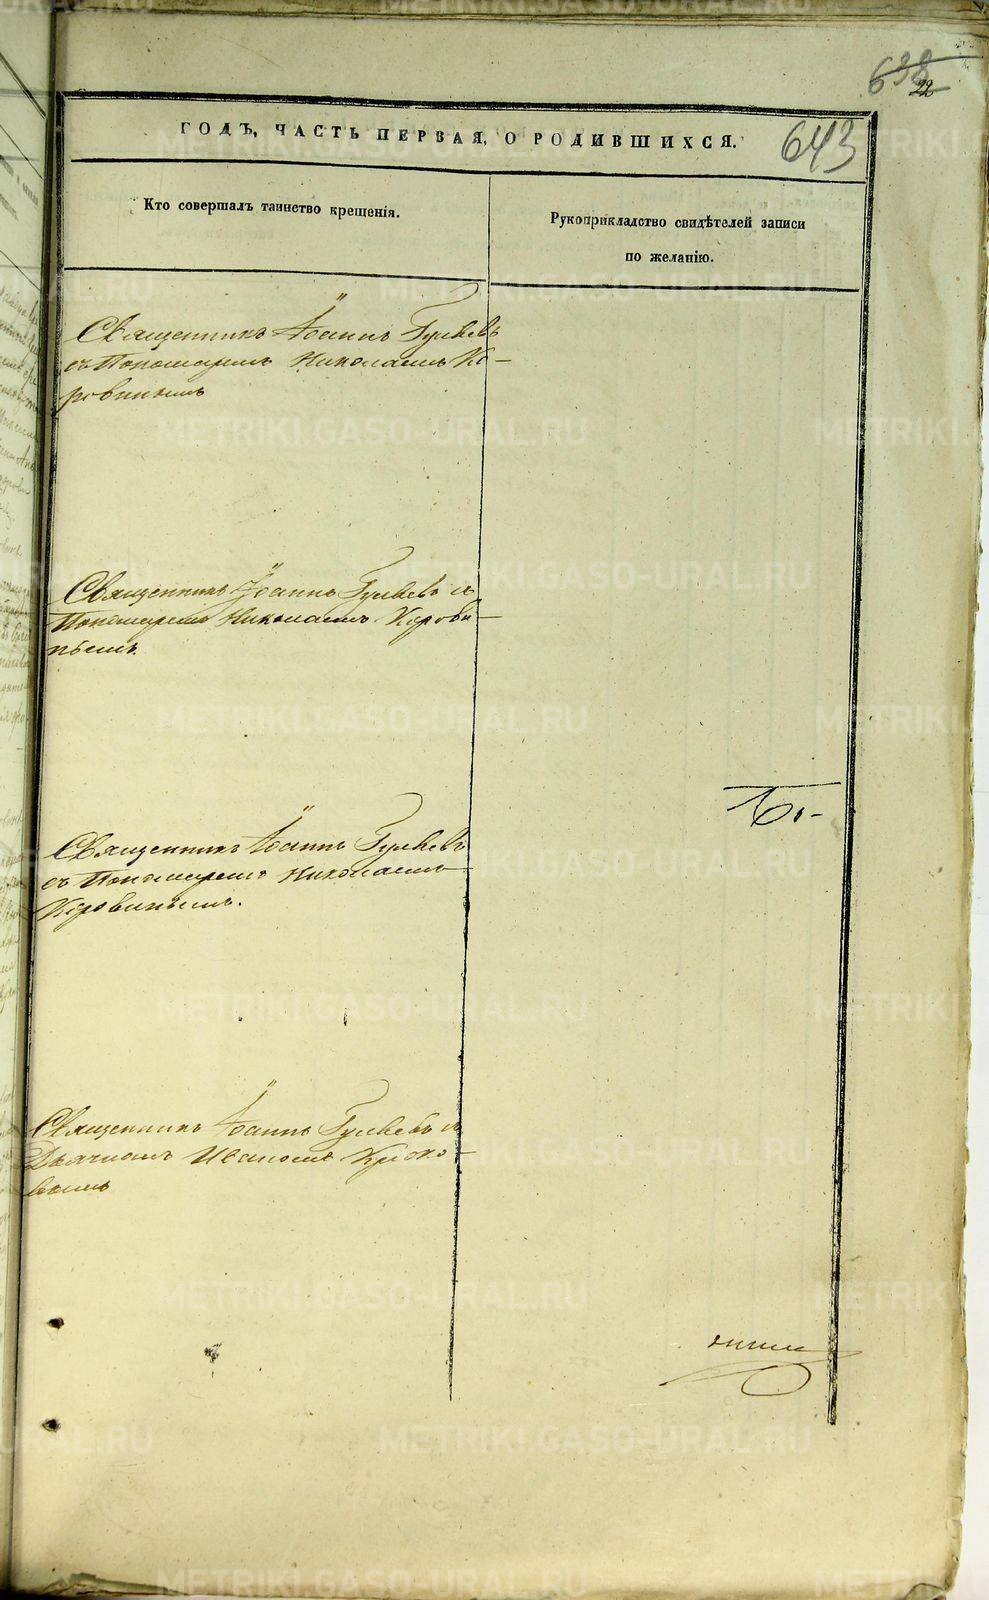 638
22
643
ГОДЪ, ЧАСТЬ ПЕРВАЯ, О РОДИВШИХСЯ.
Кто совершалъ таинство крещенія.
Рукоприкладство свидѣтелей записи
по желанію.
Священникъ Іоаннъ Гуляевъ
съ Пономаремъ Николаемъ Ко-
ровинымъ
Священникъ Іоаннъ Гуляевъ съ
Пономаремъ Николаемъ Корови-
нымъ.
Священникъ Іоаннъ Гуляевъ
съ Пономаремъ Николаемъ
Коровинымъ.
Священникъ Іоаннъ Гуляевъ съ
Дьячкомъ Иваномъ Крюко-
вымъ
METRIKI.GASO-URAL.RU